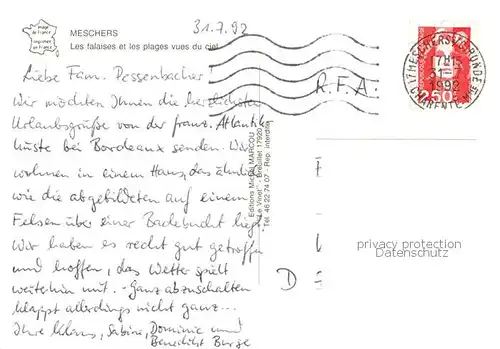 image de France
MESCHERS
Les falaises et les plages vues du ciel
31.7.92
Liebe Fam. Dessenbacher
Wir möchten Ihnen die herzlichsten
Urlaubsgrüße von der franz. Atlantik-
küste bei Bordeaux senden. Wir
wohnen in einem Haus, das ähnlich
wie die abgebildeten auf einem
Felsen über einer Badebucht liegt.
Wir haben es recht gut getroffen
und hoffen, das Wetter spielt
weiterhin mit. - Ganz abzuschalten
klappt allerdings nicht ganz...
Ihre Klaus, Sabine, Dominic und
Benedikt Burge
Editions Michel MARCOU
"Le Vinet" - Breuillet 17920
Tél. 46 22 74 07 - Rep. interdite
R.F.A.
D
17 MESCHERS S/GIRONDE
17H15
31-7
1992
CHARENTE MME
privacy protection
Datenschutz